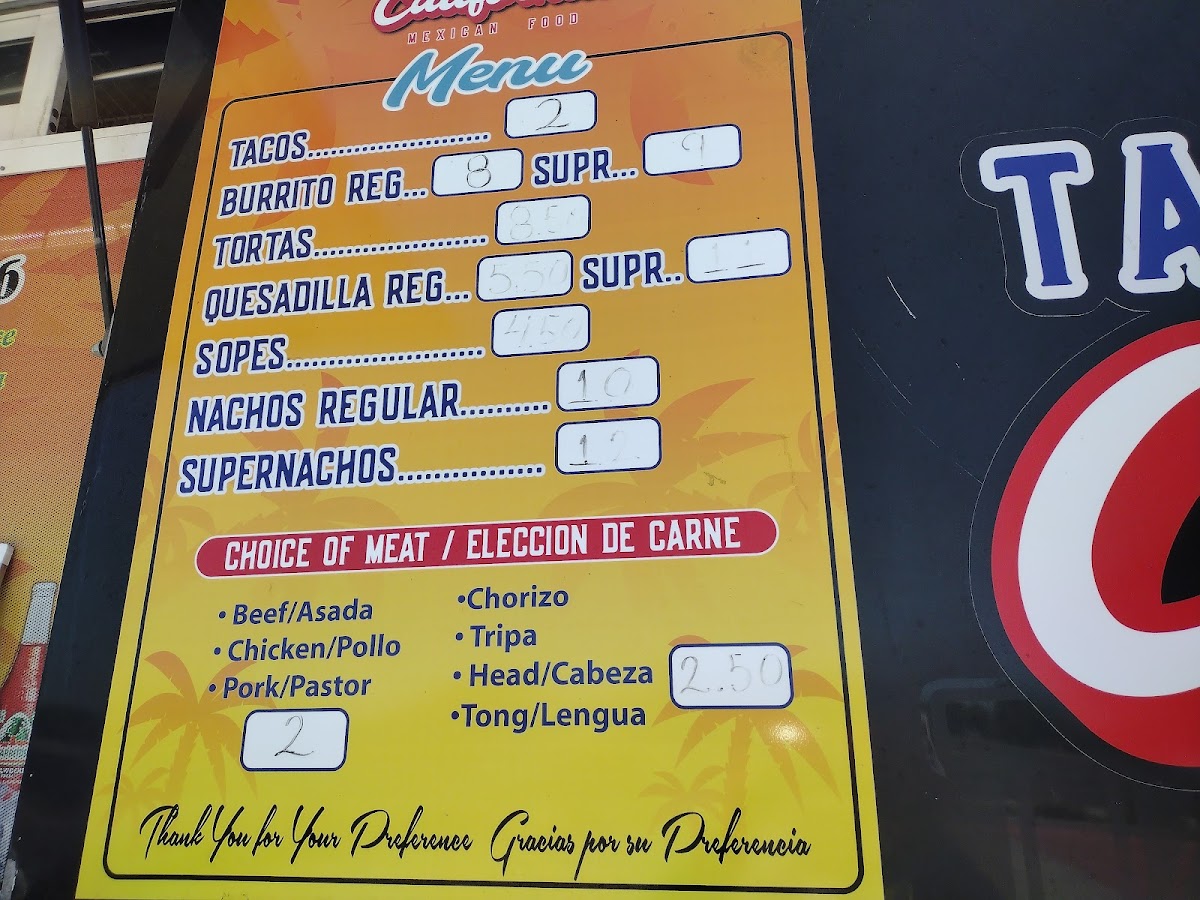 MEXICAN FOOD
Menu
TACOS.................... 2
BURRITO REG... 8 SUPR... 9
TORTAS................... 8.50
QUESADILLA REG... 5.50 SUPR.. 11
SOPES...................... 4.50
NACHOS REGULAR.......... 10
SUPERNACHOS................ 12
CHOICE OF MEAT / ELECCION DE CARNE
• Beef/Asada
• Chicken/Pollo
• Pork/Pastor
2
•Chorizo
• Tripa
• Head/Cabeza
•Tong/Lengua
2.50
Thank You for Your Preference Gracias por su Preferencia
TA